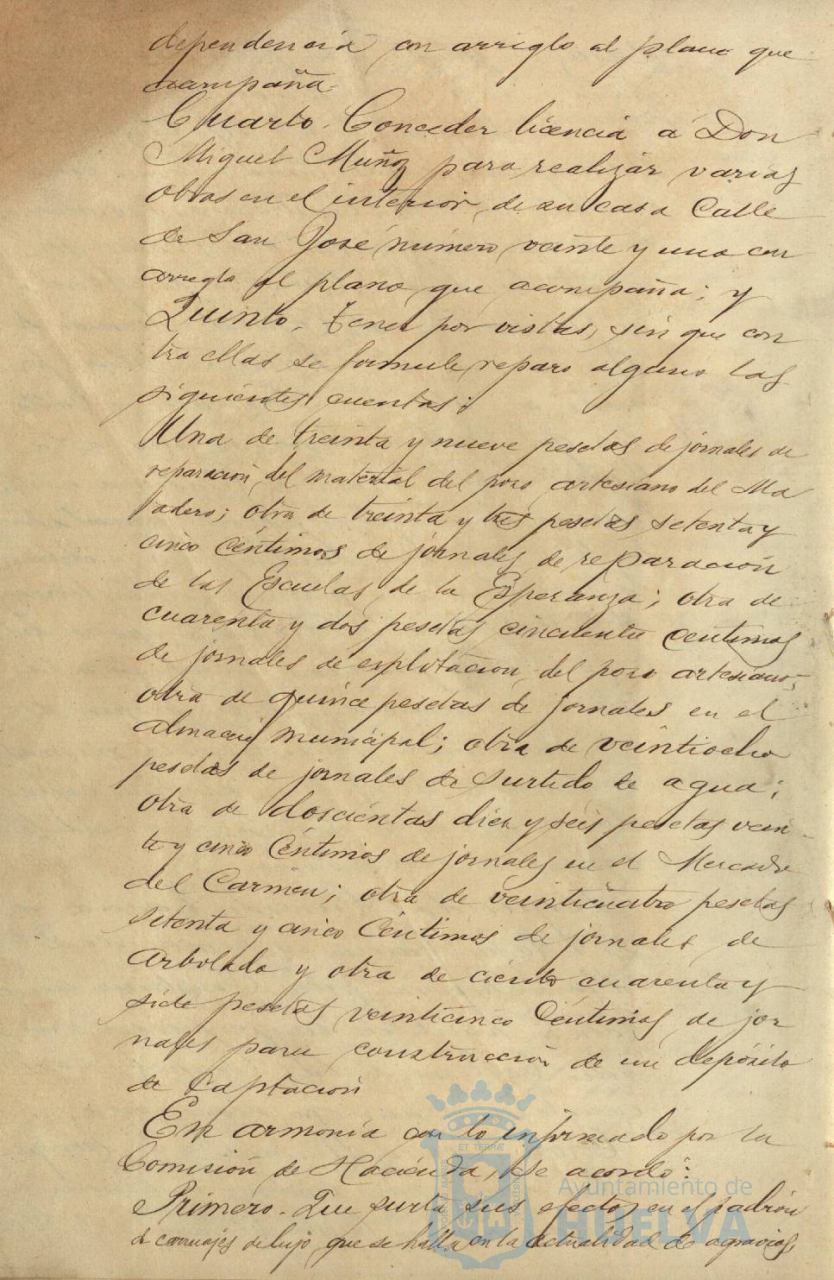 dependencia con arreglo al plano que
acompaña.
Cuarto. Conceder licencia á Don
Miguel Muñoz para realizar varias
obras en el interior de su casa Calle
de San José número veinte y uno con
arreglo al plano que acompaña; y
Quinto. Tener por vistas, sin que con
tra ellas se formule reparo alguno las
siguientes cuentas:
Una de treinta y nueve pesetas de jornales de
reparación del material del pozo artesiano del Ma
tadero; otra de treinta y tres pesetas setenta y
cinco céntimos de jornales de reparación
de las Escuelas de la Esperanza; otra de
cuarenta y dos pesetas cincuenta céntimos
de jornales de explotacion del pozo artesiano;
otra de quince pesetas de jornales en el
almacen municipal; otra de veintiocho
pesetas de jornales de surtido de agua;
otra de doscientas diez y seis pesetas vein-
te y cinco céntimos de jornales en el Mercado
del Carmen; otra de veinticuatro pesetas
setenta y cinco céntimos de jornales de
arbolado y otra de ciento cuarenta y
siete pesetas veinticinco céntimos de jor
nales para construcción de un depósito
de captación
En armonía con lo informado por la
Comisión de Hacienda, se acordó:
Primero. Que surta sus efectos en el padrón
de carruajes de lujo que se halla en la actualidad de agravios
Ayuntamiento de
HUELVA